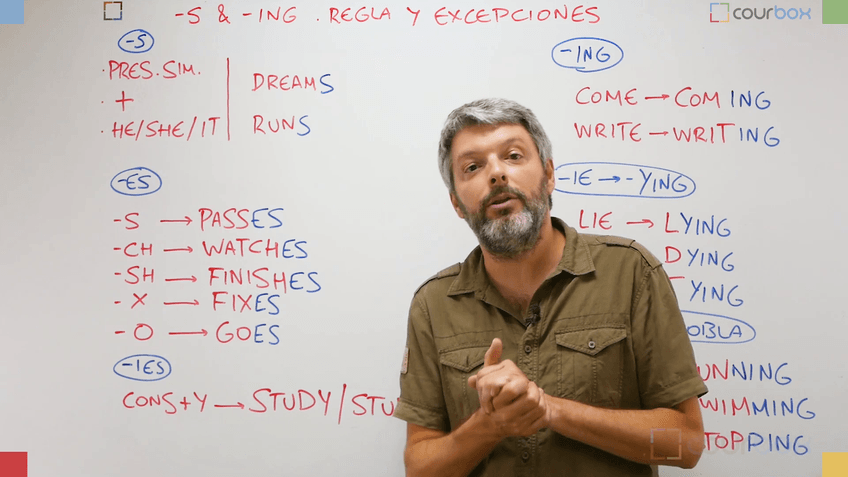 -S & -ING . REGLA Y EXCEPCIONES
courbox
-S
· PRES. SIM.
· +
· HE/SHE/IT
DREAMS
RUNS
-ES
-S → PASSES
-CH → WATCHES
-SH → FINISHES
-X → FIXES
-O → GOES
-IES
CONS+Y → STUDY/STU
-ING
COME → COMING
WRITE → WRITING
-IE → -YING
LIE → LYING
DYING
YING
OBLA
UNNING
WIMMING
TOPPING